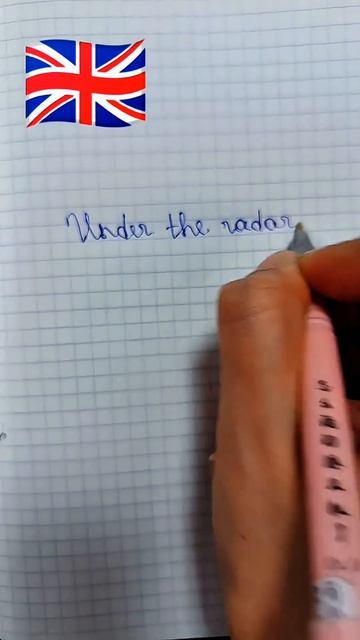 Under the radar